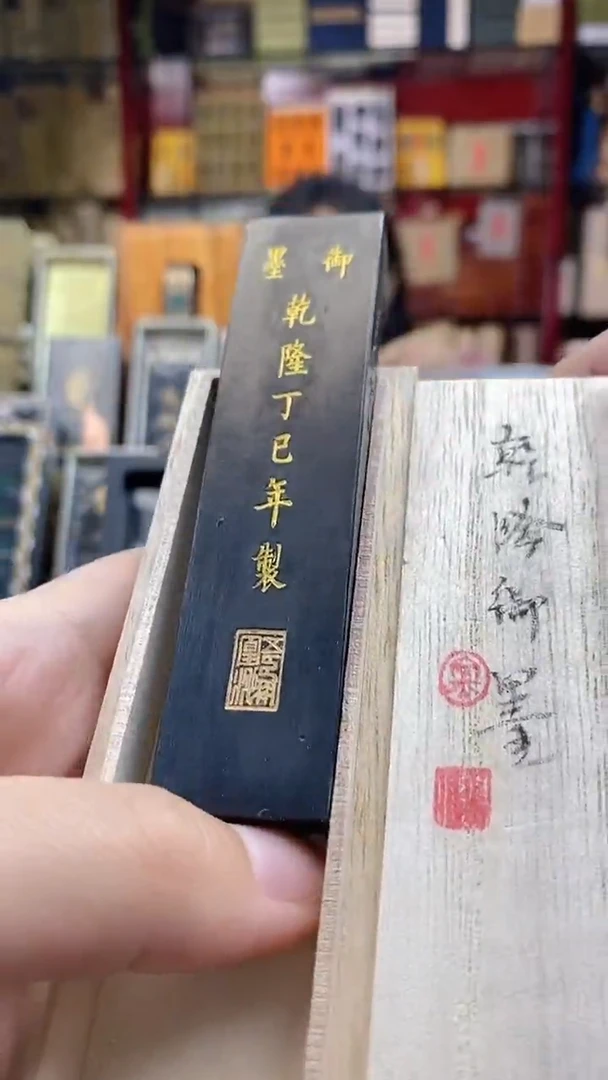 御墨
乾隆丁巳年製
乾隆御墨